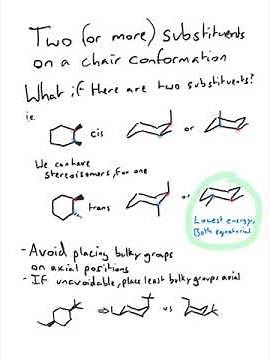 Two (or more) substituents
on a chair conformation
What if there are two substituents?
ie
cis
or
We can have
stereoisomers, for one
trans
or
Lowest energy,
Both equatorial
- Avoid placing bulky groups
on axial positions
- If unavoidable, place least bulky groups axial
vs